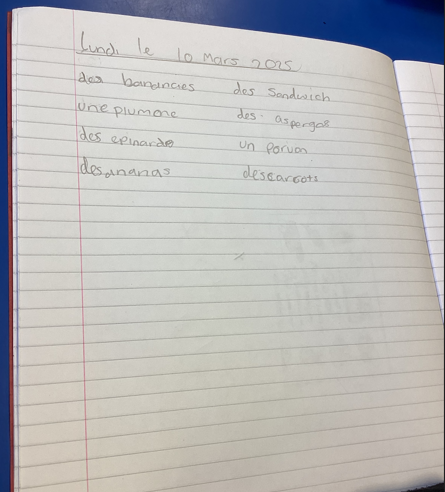 Lundi le 10 Mars 2025
des bananes des Sandwich
une plumone des asperges
des epinards un porvon
des ananas des carrots